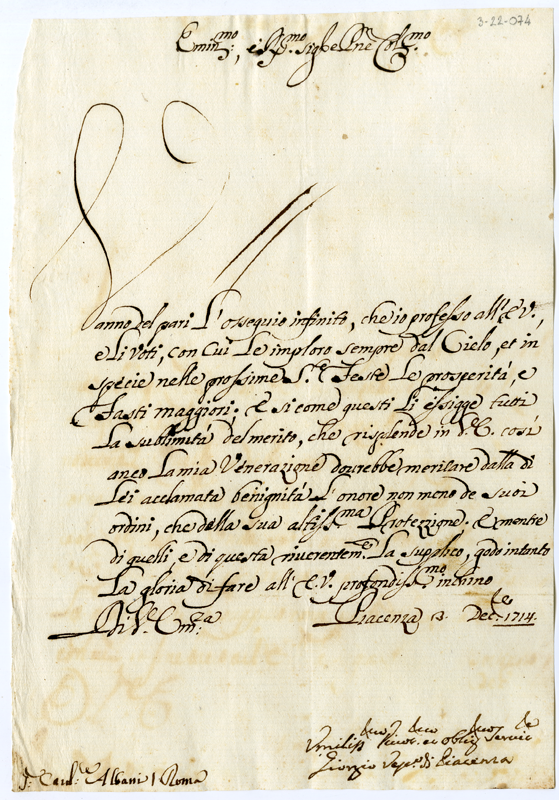 3-22-074
Emin.mo, e R.mo Sig.re P.ne Col.mo
Vanno del pari L'ossequio infinito, che io professo all'E.V.,
e Li voti, con Cui Le imploro sempre dal Cielo, et in
specie nelle prossime S.te Feste Le prosperità, e
Fasti maggiori: E si come questi Li essigge tutti
La sublimità del merito, che risplende in V.E. così
anco La mia Venerazione dourebbe meritare dalla di
Lei acclamata benignità L'onore non meno de suoi
ordini, che della sua altiss.ma Protezzione. E mentre
di quelli e di questa riuerentem.te La supplico, godo intanto
La gloria di fare all'E.V. profondiss.mo inchino
Di V.E. Em.za
Piacenza 13. Dec.bre 1714.
Vmiliss. Diuot. et oblig. Servit.
Giorgio Vesc. di Piacenza
S.r Card.le Albani / Roma